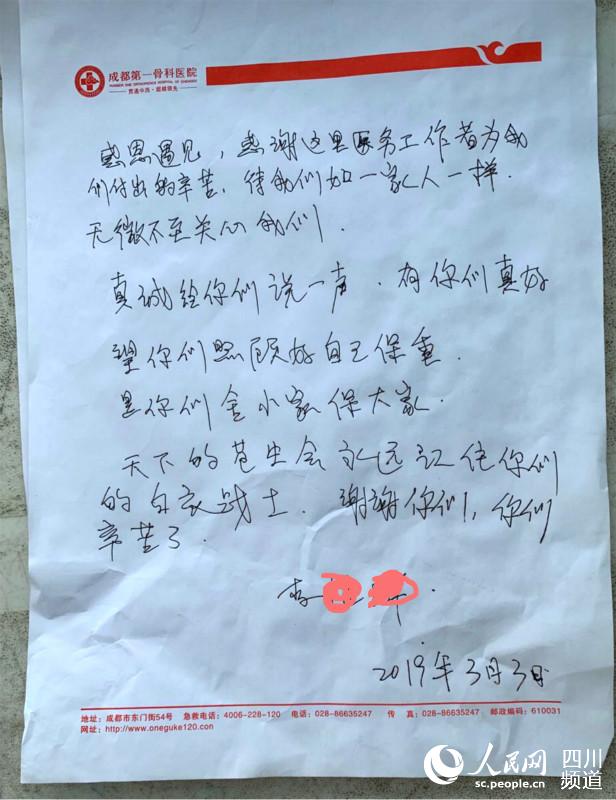 成都第一骨科医院
NUMBER ONE ORTHOPAEDICS HOSPITAL OF CHENGDU
贯通中西·超越领先
感恩遇见，感谢这里医务工作者为我
们付出的辛苦，待我们如一家人一样．
无微不至关心我们．
真诚给你们说一声．有你们真好
望你们照顾好自己保重．
是你们舍小家保大家．
天下的苍生会永远记住你们
的白衣战士．谢谢你们，你们
辛苦了．
李
2019年3月3日
地址：成都市东门街54号 急救电话：4006-228-120 电话：028-86635247 传 真：028-86635247 邮政编码：610031
网址：http://www.oneguke120.con
人民网 四川
sc.people.cn 频道